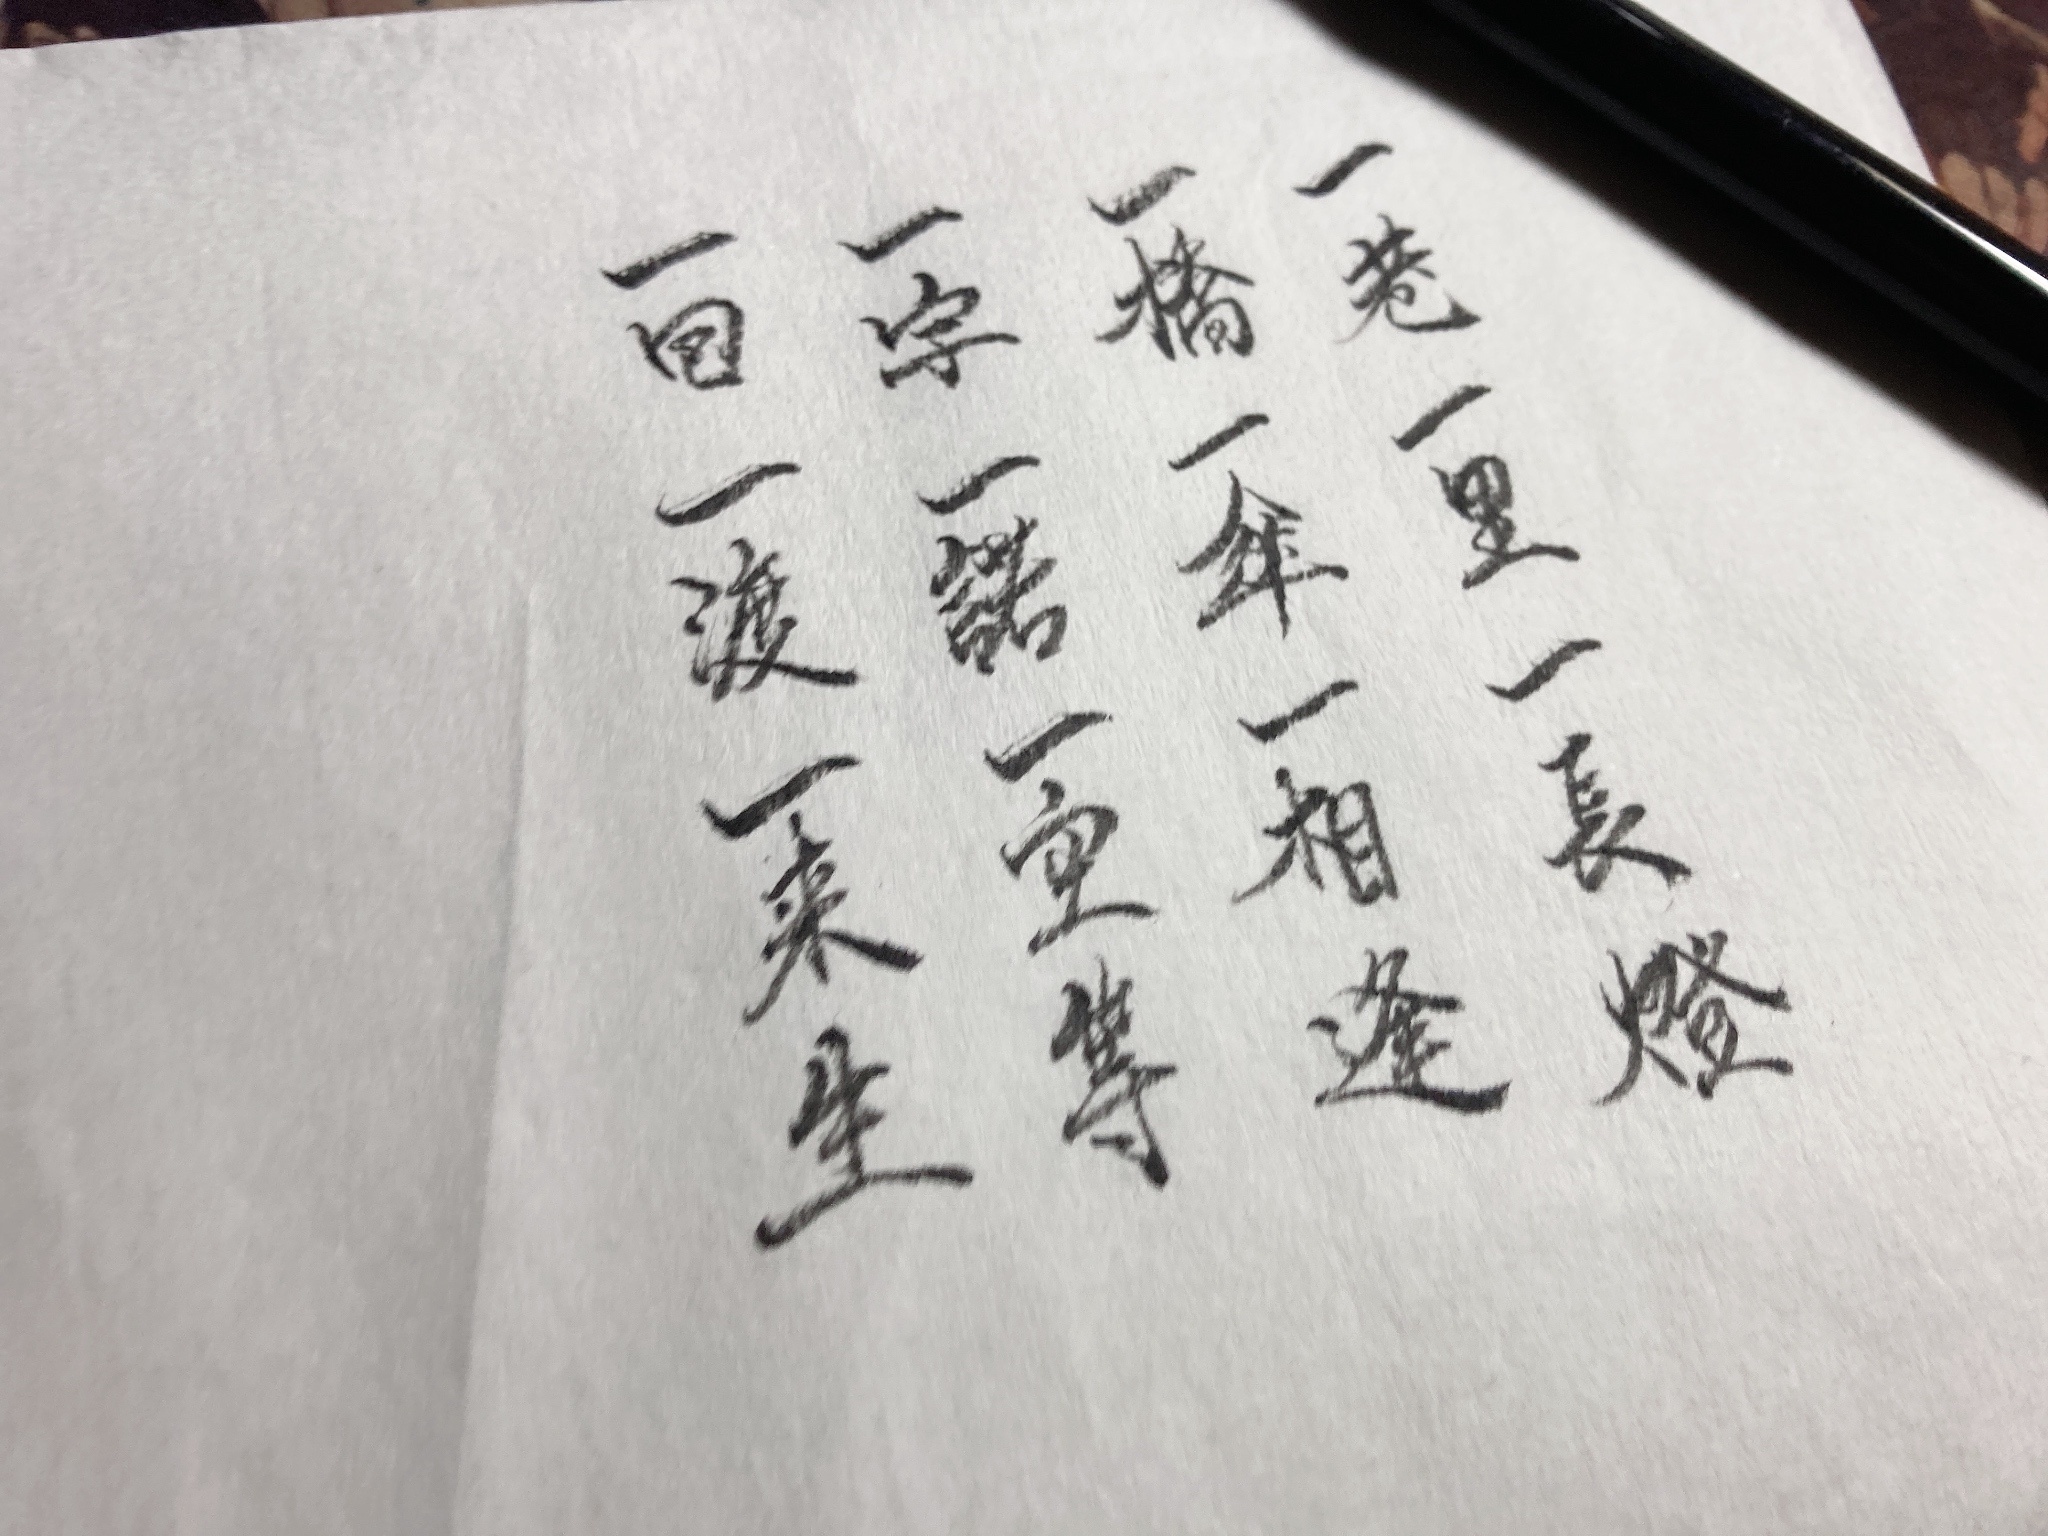 一巷一里一長燈
一橋一傘一相逢
一字一諾一空等
一回一渡一來生